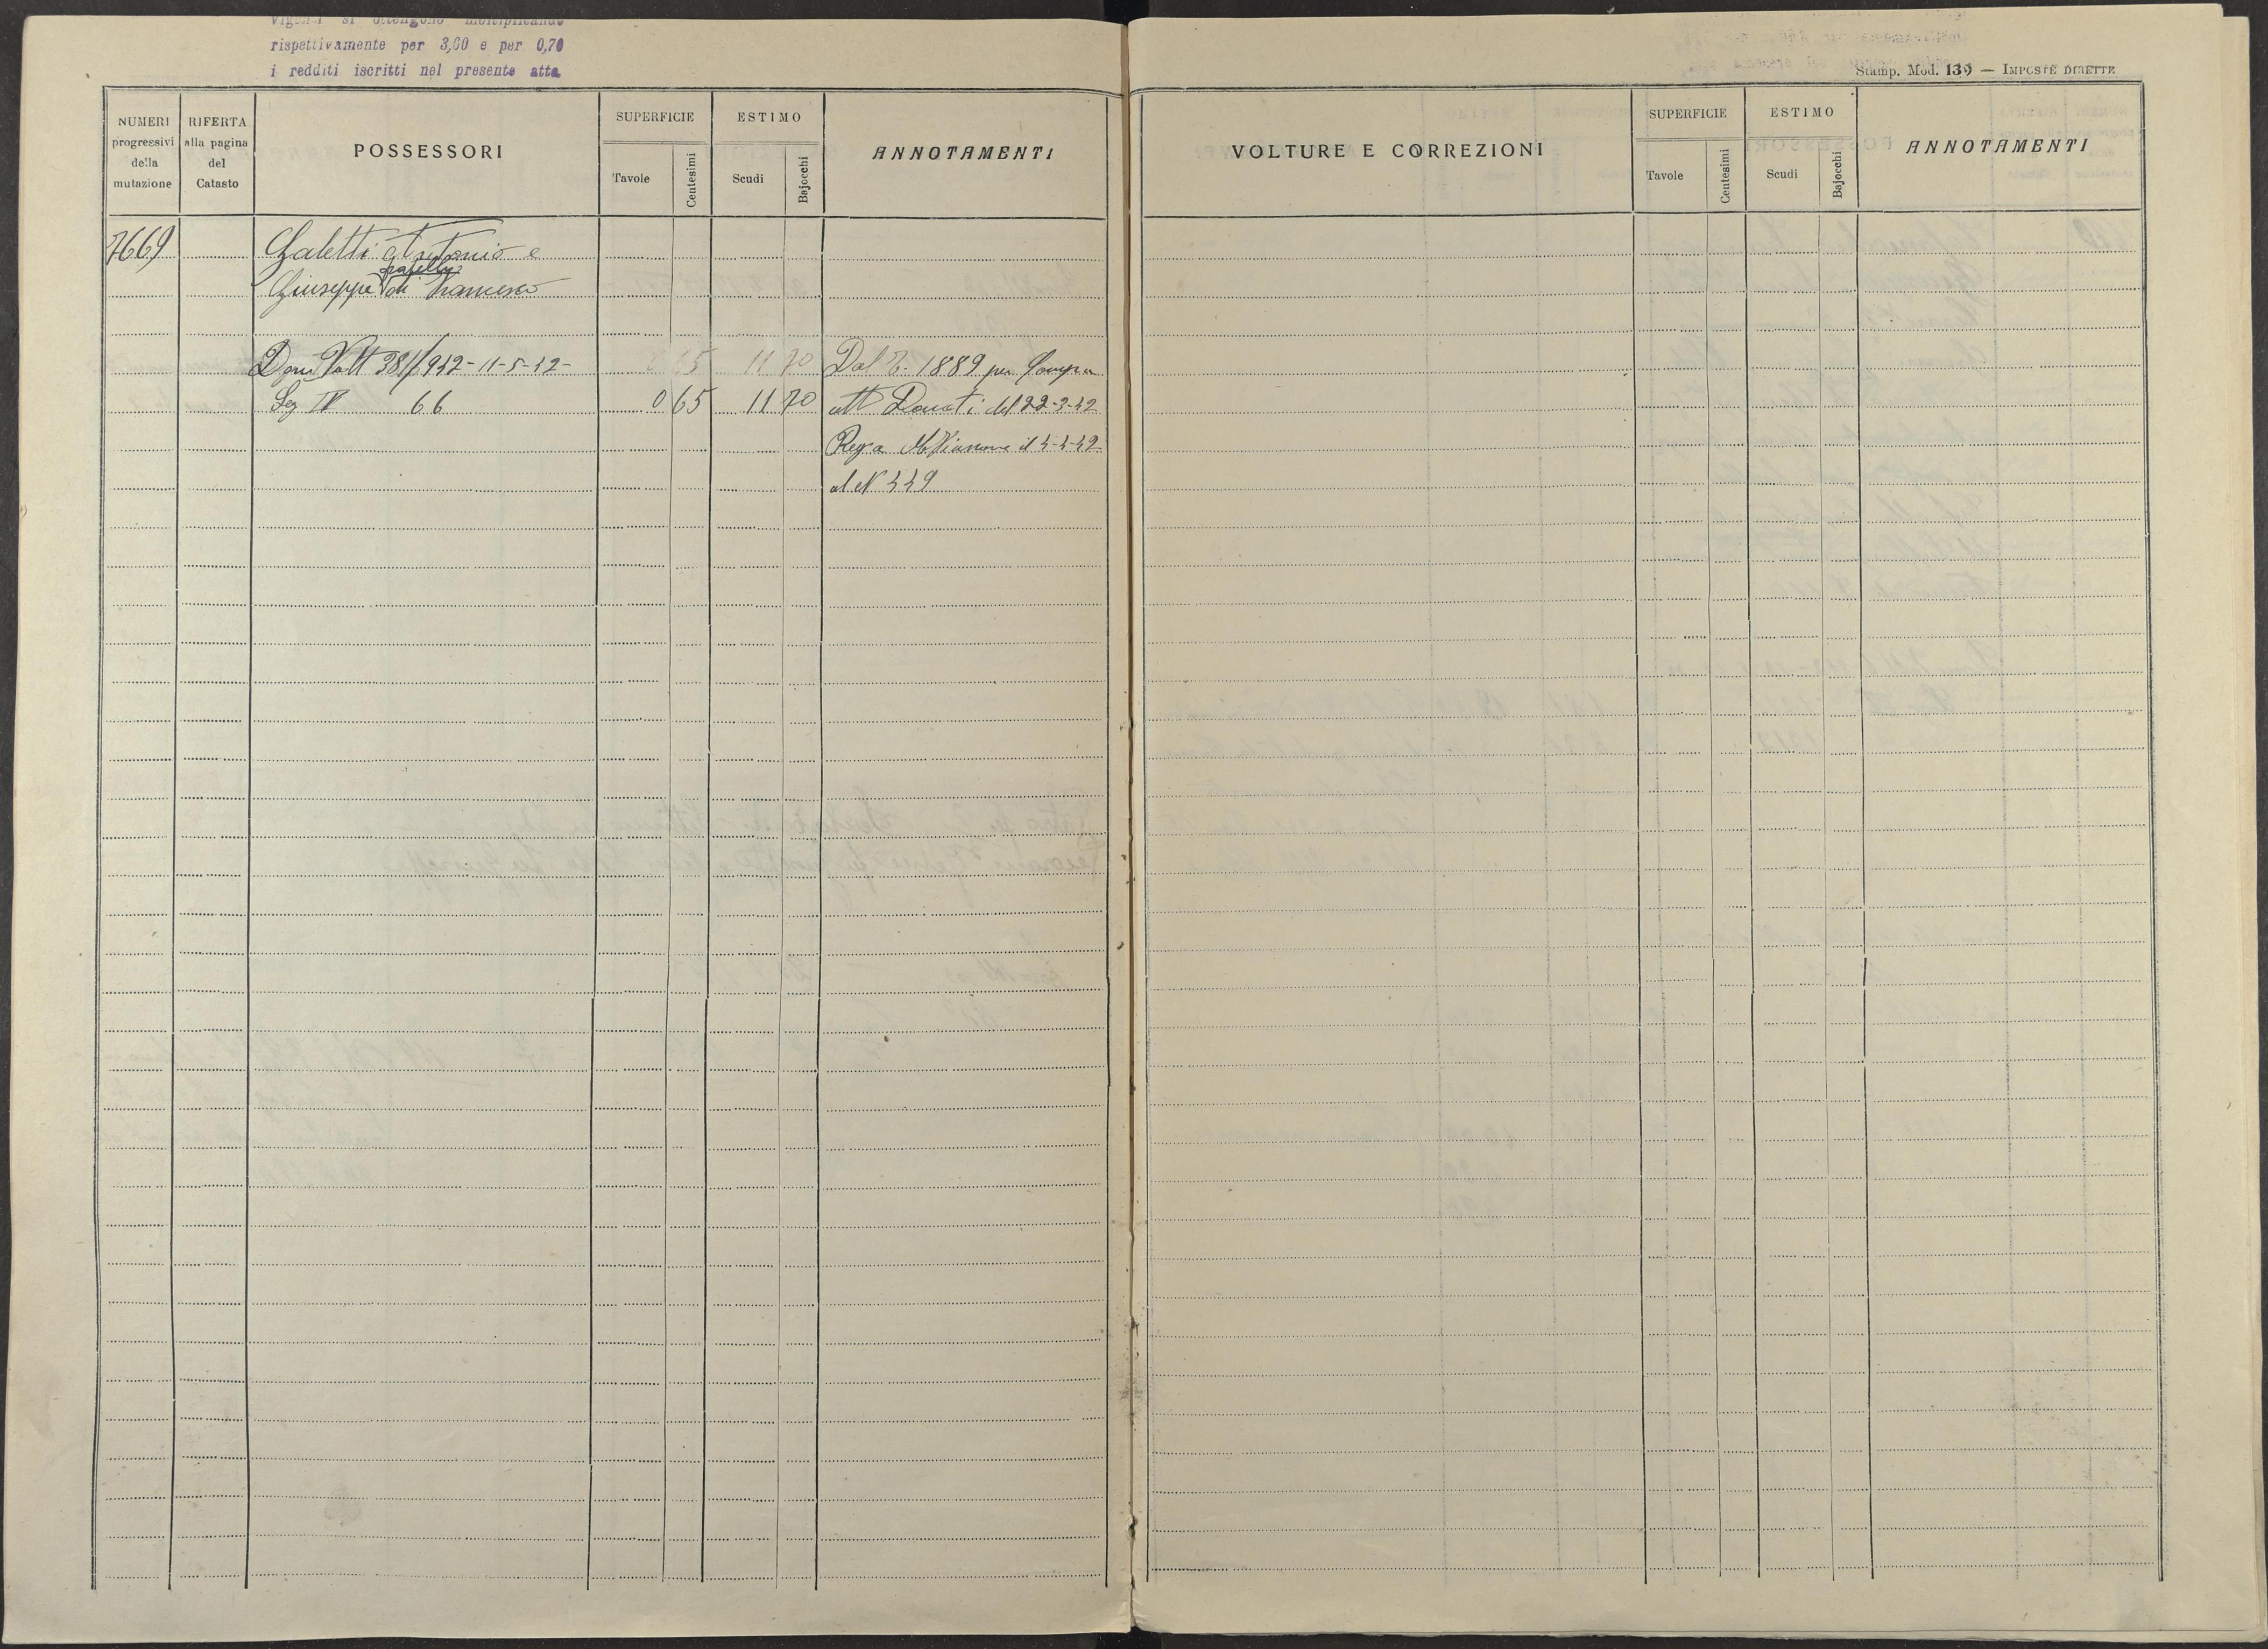 vigenti si ottengono moltiplicando
rispettivamente per 3,60 e per 0,70
i redditi iscritti nel presente atto.
Stamp. Mod. 139 — IMPOSTE DIRETTE
NUMERI progressivi della mutazione
RIFERTA alla pagina del Catasto
POSSESSORI
SUPERFICIE
Tavole
Centesimi
ESTIMO
Scudi
Bajocchi
ANNOTAMENTI
VOLTURE E CORREZIONI
SUPERFICIE
Tavole
Centesimi
ESTIMO
Scudi
Bajocchi
ANNOTAMENTI
7669 Galetti Antonio e
fratelli
Giuseppe di Francesco
Dom Volt 381/942-11-5-42- 65 11 70 Dal R. 1889 per Compra
Sez IV 66 0 65 11 70 att Donati del 22-3-42
Reg a il 4-4-42
al N 449